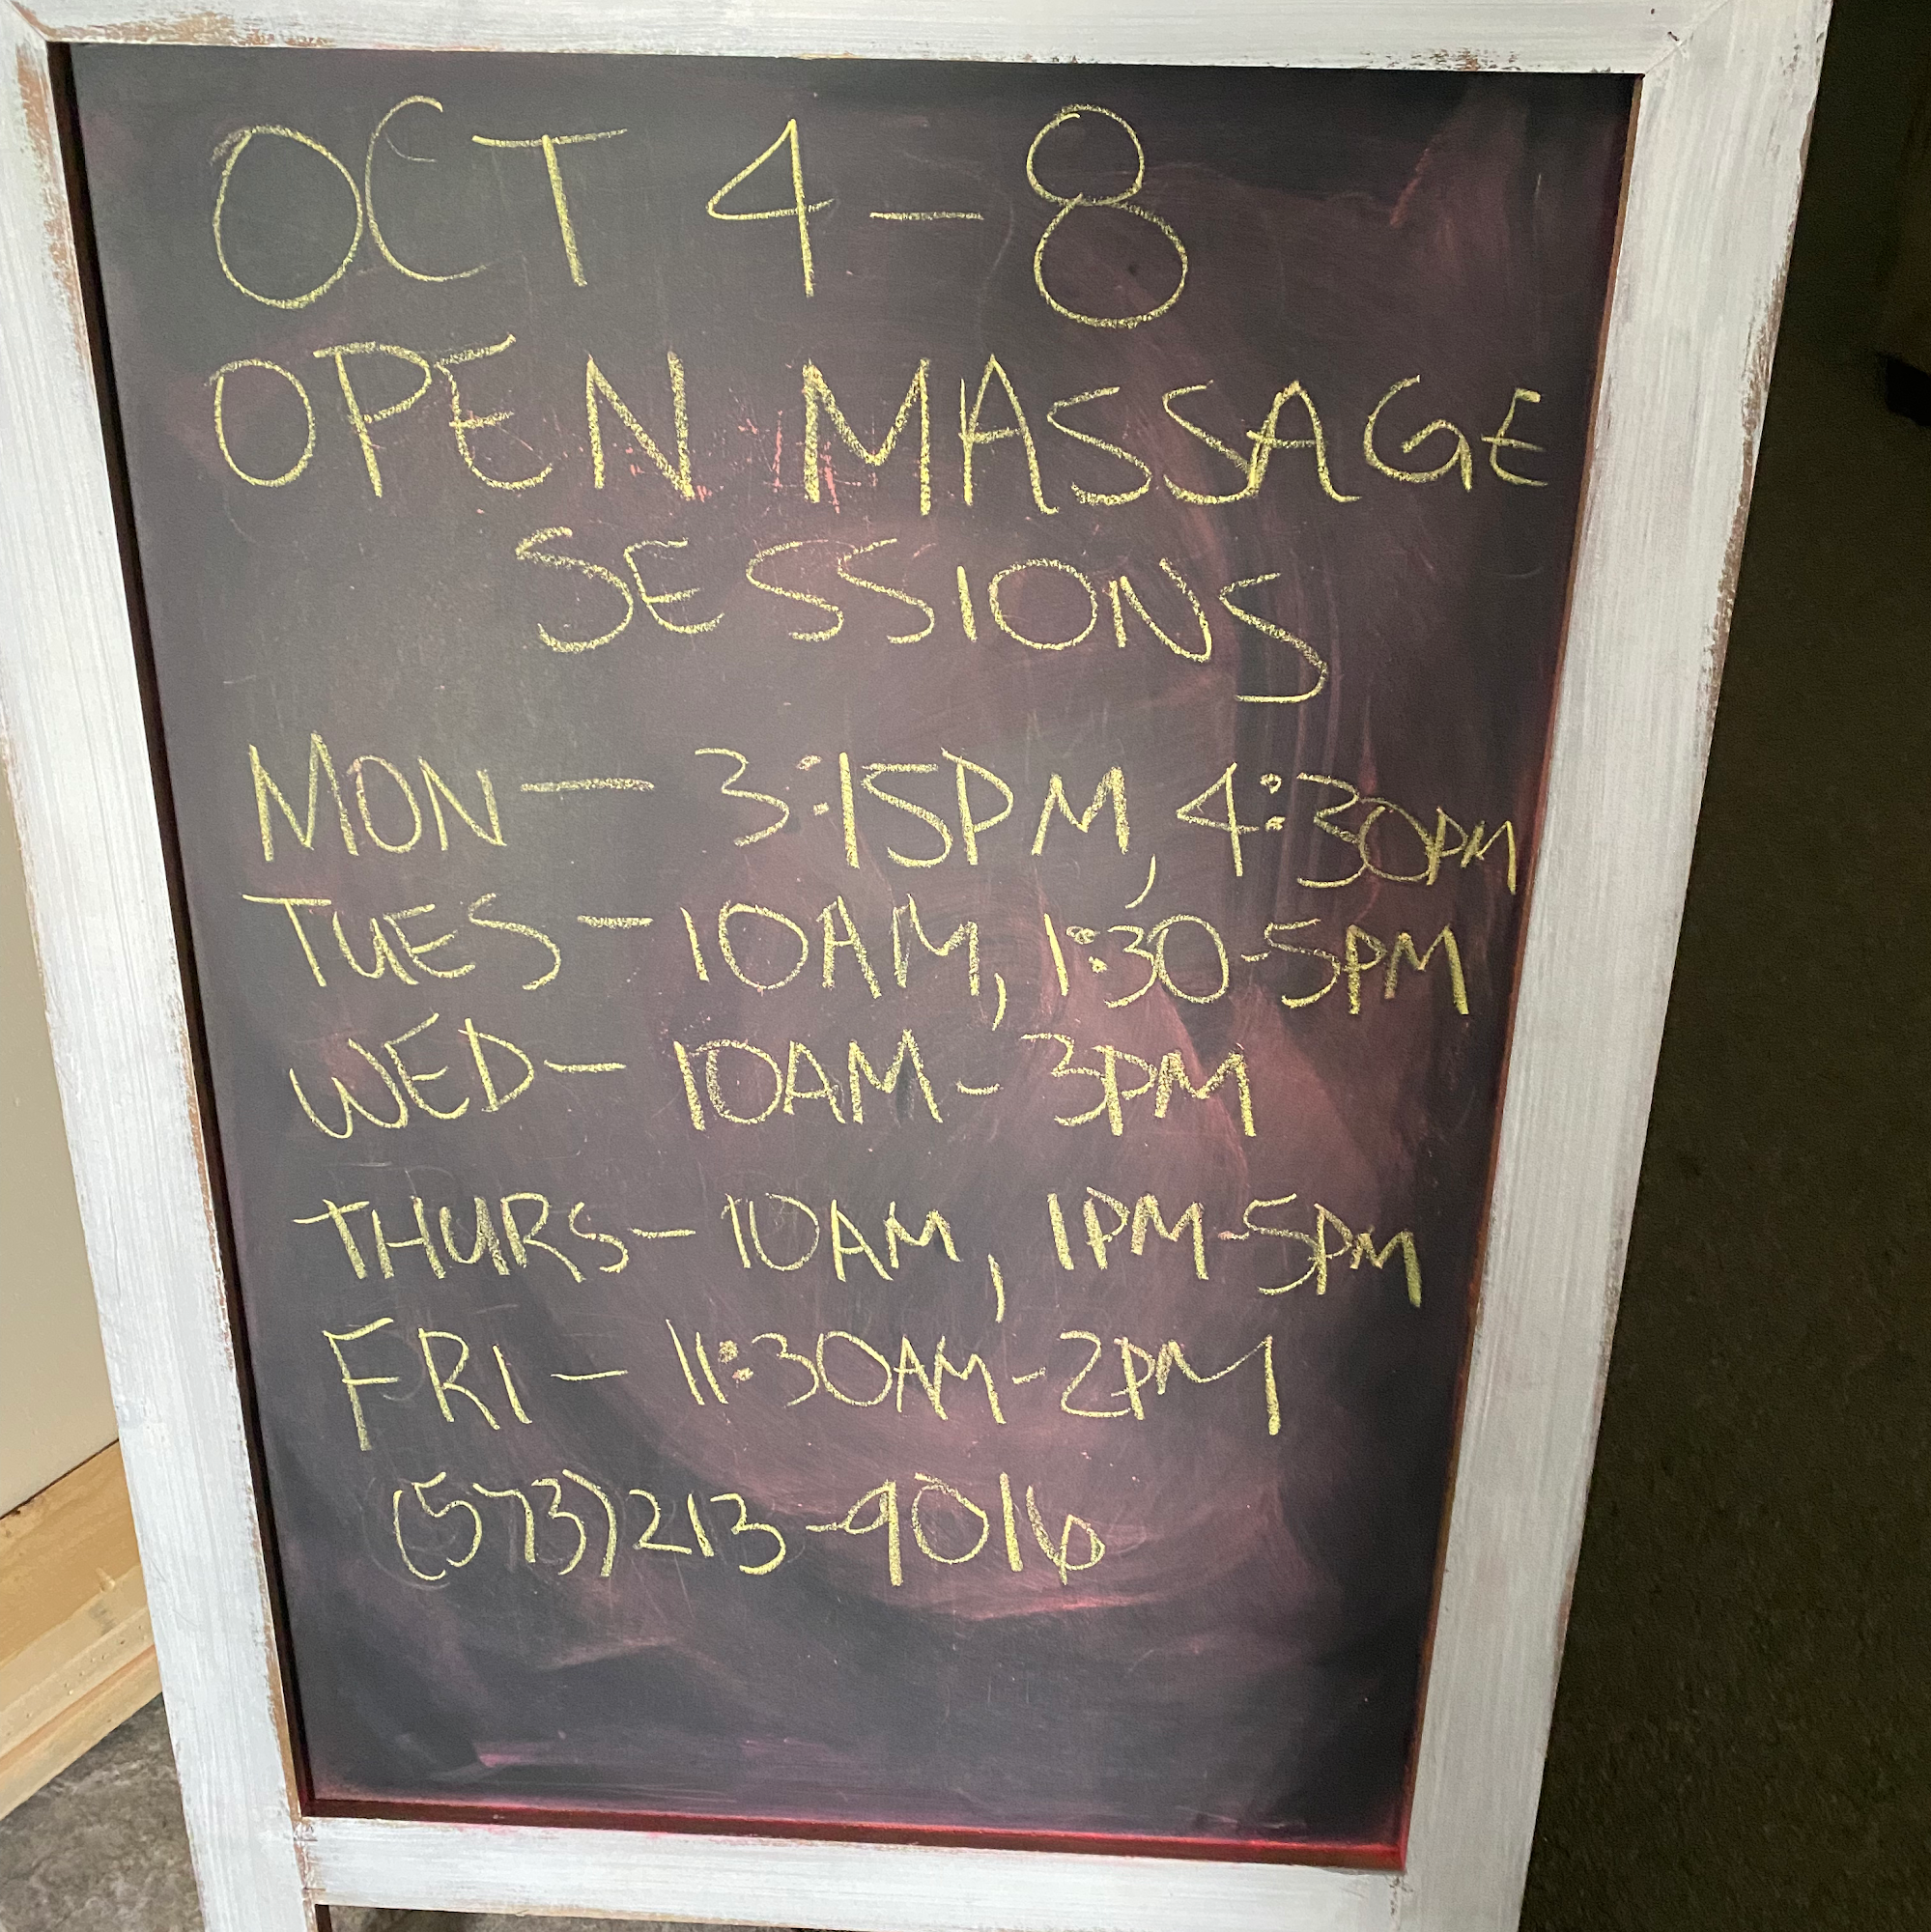 OCT 4-8
OPEN MASSAGE
SESSIONS
MON - 3:15PM, 4:30PM
TUES - 10AM, 1:30-5PM
WED - 10AM - 3PM
THURS - 10AM, 1PM-5PM
FRI - 11:30AM-2PM
(573)213-9016